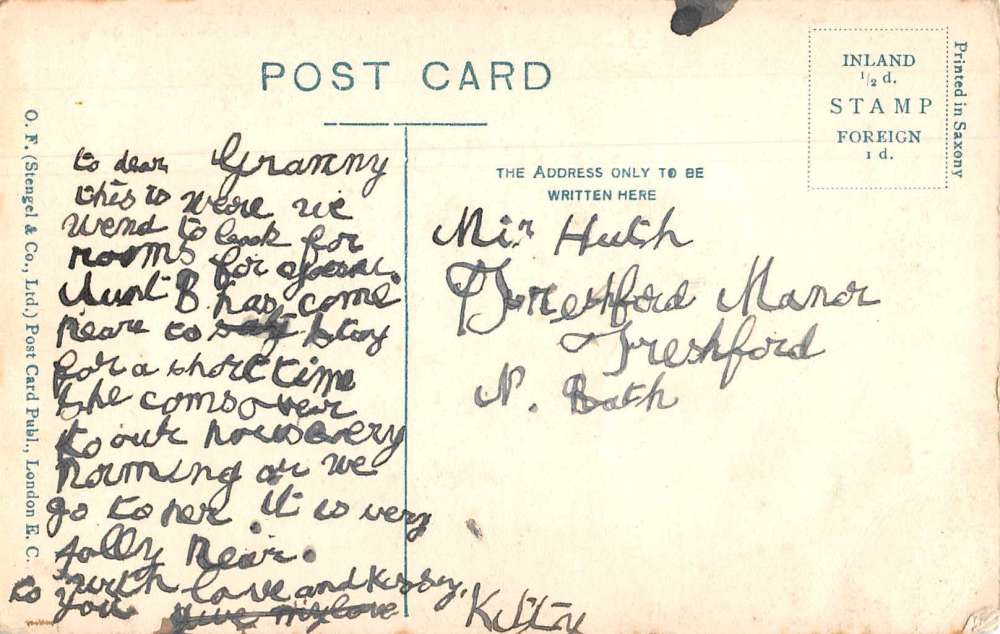 POST CARD
INLAND
1/2 d.
STAMP
FOREIGN
1 d.
Printed in Saxony
O. F. (Stengel & Co., Ltd.) Post Card Publ., London E. C.
THE ADDRESS ONLY TO BE
WRITTEN HERE
to dear Granny
this is weare we
wend to look for
rooms for
Aunt B has come
neare to stay
for a short time
she coms over
to our hous every
morning or we
go to her it is very
jolly near.
with love and kisses,
to you give my love
Huth
Freshford Manor
Freshford
N. Bath